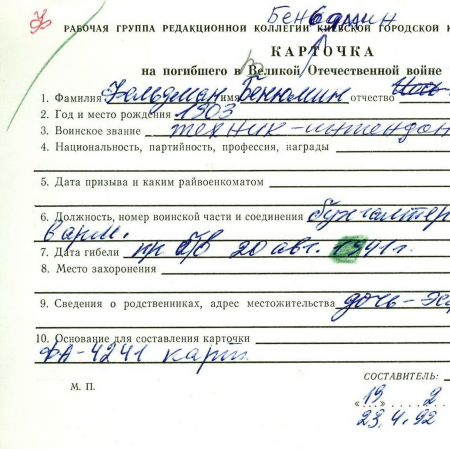 Бениамин
РАБОЧАЯ ГРУППА РЕДАКЦИОННОЙ КОЛЛЕГИИ КИЕВСКОЙ ГОРОДСКОЙ К
КАРТОЧКА
на погибшего в Великой Отечественной войне
1. Фамилия Фельдман имя Бенюмин отчество
2. Год и место рождения 1903
3. Воинское звание техник-интендан
4. Национальность, партийность, профессия, награды
5. Дата призыва и каким райвоенкоматом
6. Должность, номер воинской части и соединения бухгалтер
в арм.
7. Дата гибели пр б/в 20 авг. 1941г.
8. Место захоронения
9. Сведения о родственниках, адрес местожительства дочь-
10. Основание для составления карточки
ФА-4241 карт
М. П.
СОСТАВИТЕЛЬ:
«19 2
23.4.92